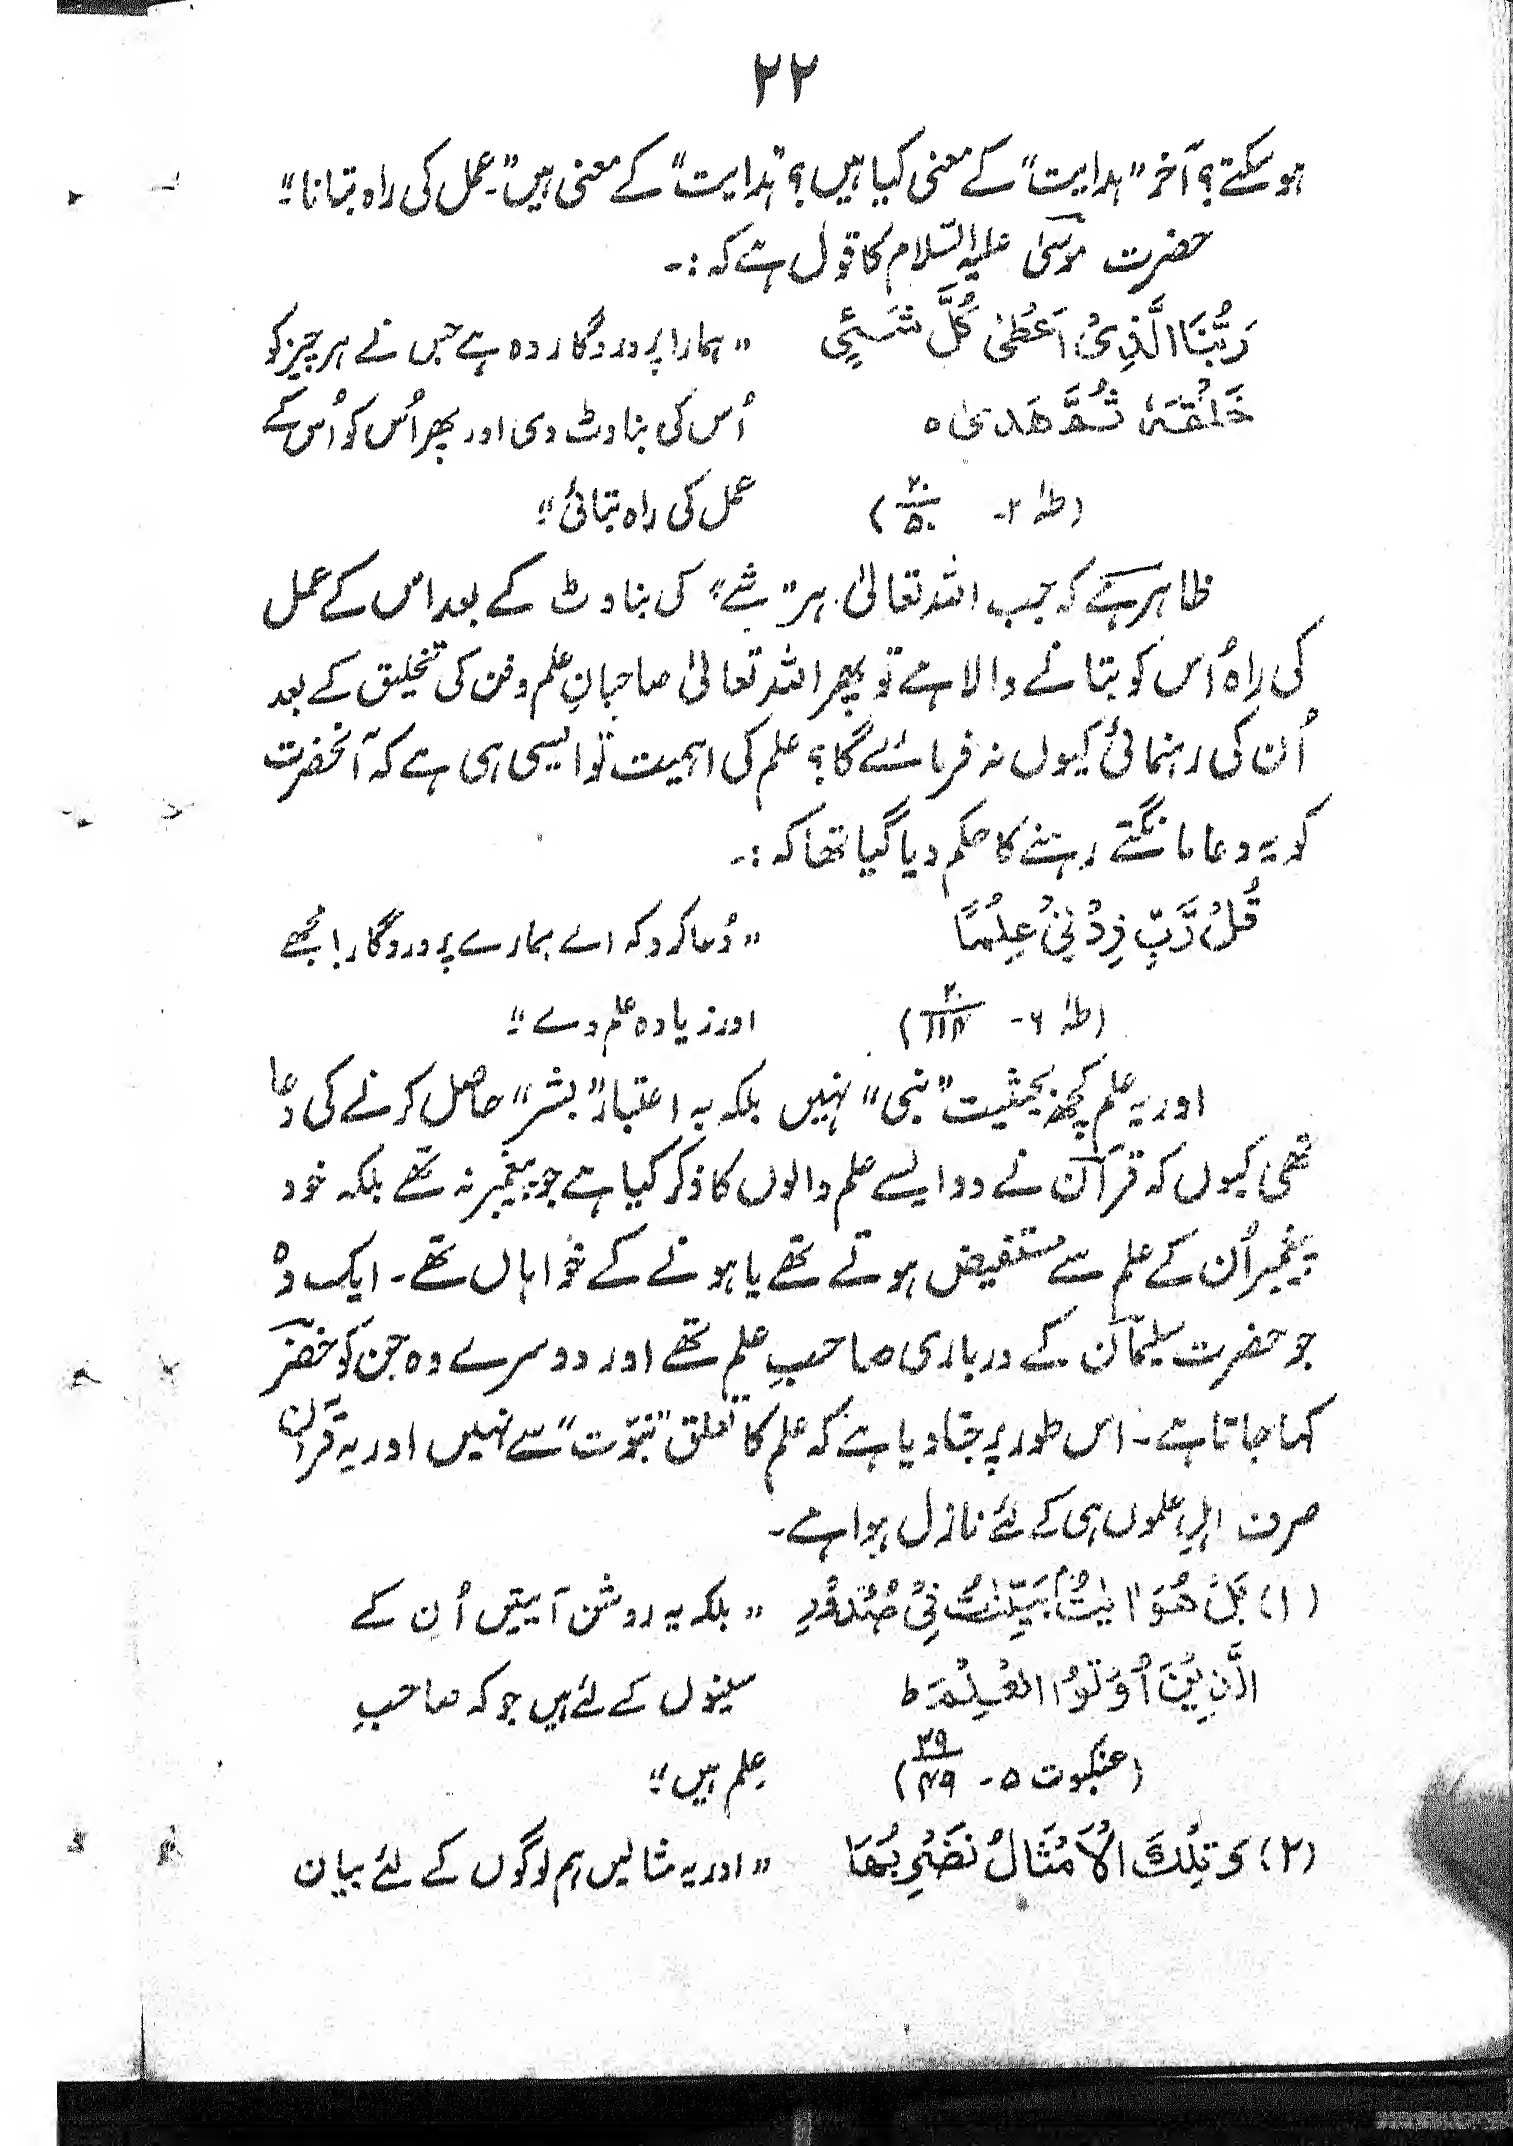 ۲۲
ہو سکتے؟ آخر "ہدایت" کے معنی کیا ہیں؟ "ہدایت" کے معنی ہیں "۔عمل کی راہ بتانا"
حضرت موسیٰؑ علیہ السّلام کا قول ہے کہ :۔
رَبُّنَا الَّذِیْ اَعْطٰی کُلَّ شَیْءٍ "ہمارا پروردگار وہ ہے جس نے ہر چیز کو
خَلْقَہٗ ثُمَّ ھَدٰی ہ اُس کی بناوٹ دی اور پھر اُس کو اُس کے
(طٰہٰ ۲- ۲۰/۵۰) عمل کی راہ بتائی"
ظاہر ہے کہ جب اللہ تعالیٰ ہر "شے" کی بناوٹ کے بعد اس کے عمل
کی راہ اُس کو بتانے والا ہے تو پھر اللہ تعالیٰ صاحبانِ علم و فن کی تخلیق کے بعد
اُن کی رہنمائی کیوں نہ فرمائے گا؟ علم کی اہمیت تو ایسی ہی ہے کہ آنحضرت
کو یہ دعا مانگتے رہنے کا حکم دیا گیا تھا کہ :۔
قُلْ رَّبِّ زِدْنِیْ عِلْمًا "دُعا کرو کہ اے ہمارے پروردگار! مجھے
(طٰہٰ ۶- ۲۰/۱۱۴) اور زیادہ علم دے"
اور یہ علم کچھ بحیثیت "نبی" نہیں بلکہ بہ اعتبار "بشر" حاصل کرنے کی دعا
تھی کیوں کہ قرآن نے دو ایسے علم والوں کا ذکر کیا ہے جو پیغمبر نہ تھے بلکہ خود
پیغمبر اُن کے علم سے مستفیض ہوتے تھے یا ہونے کے خواہاں تھے۔ ایک وہ
جو حضرت سلیمانؑ کے درباری صاحبِ علم تھے اور دوسرے وہ جن کو خضرؑ
کہا جاتا ہے۔ اس طور پر جتا دیا ہے کہ علم کا تعلق "نبوّت" سے نہیں اور یہ قرآن
صرف اہلِ علموں ہی کے لئے نازل ہوا ہے۔
(۱) بَلْ ھُوَ اٰیٰتٌۢ بَیِّنٰتٌ فِیْ صُدُوْرِ "بلکہ یہ روشن آیتیں اُن کے
الَّذِیْنَ اُوْتُوا الْعِلْمَ ط سینوں کے لئے ہیں جو کہ صاحبِ
(عنکبوت ۵- ۲۹/۴۹) عِلم ہیں"
(۲) وَ تِلْکَ الْاَمْثَالُ نَضْرِبُھَا "اور یہ مثالیں ہم لوگوں کے لئے بیان